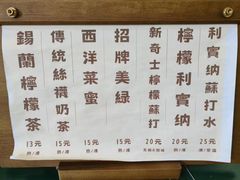 利賓納蘇打水
25元
檸檬利賓納
20元
熱/凍
新奇士檸檬蘇打
20元
招牌美綠
15元
熱/凍
西洋菜蜜
15元
熱/凍
傳統絲襪奶茶
15元
熱/凍
錫蘭檸檬茶
13元
熱/凍